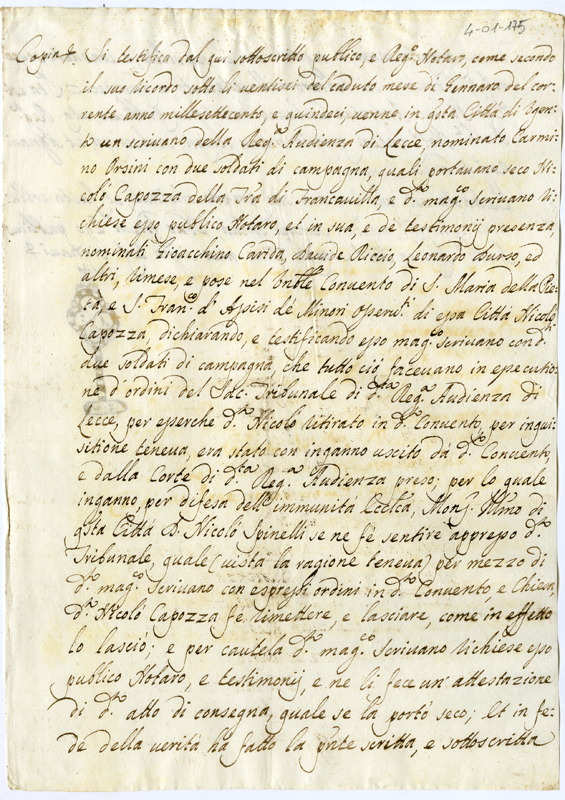 4-01-175
Copia Si testifica dal qui sottoscritto publico, e Reg.º Notaro, come secondo
il suo ricordo sotto li ventisei del caduto mese di Gennaro del cor-
rente anno millesettecento, e quindeci, venne in q̃sta Città di Ugen-
to un scrivano della Reg.ª Audienza di Lecce, nominato Carmi-
no Orsini con due soldati di campagna, quali portavano seco Ni-
colò Capozza della T̃ra di Francavilla, e d.º mag.co scrivano ri-
chiese esso publico Notaro, et in sua, e de testimonij presenza
nominati Gioacchino Carida, Davide Riccio, Leonardo Durso, ed
altri, rimese, e pose nel Convento di S. Maria della Pie-
tà, e S. Fran.co d'Assisi de Minori Osserv.ti di essa Città Nicolò
Capozza, dichiarando, e testificando esso mag.co scrivano con d.ti
due soldati di campagna, che tutto ciò facevano in esecutio-
ne d'ordini del Sac. Tribunale di d.ta Reg.ª Audienza di
Lecce, per esserche d.º Nicolò ritirato in d.º Convento, per inqui-
sitione teneva, era stato con inganno uscito da d.to Convento,
e dalla Corte di d.ta Reg.ª Audienza preso; per lo quale
inganno, per difesa dell'immunità Eccl.ca, Mons.r Ill̃mo di
q̃sta Città D. Nicolò Spinelli se ne fè sentire appresso d.to
Tribunale, quale (vista la ragione teneva) per mezzo di
d.to mag.co scrivano con espressi ordini in d.to Convento, e Chiesa,
d.to Nicolò Capozza fè rimettere, e lasciare, come in effetto
lo lasciò; e per cautela d.to mag.co scrivano richiese esso
publico Notaro, e testimonij, e ne li fece un'attestazione
di d.to atto di consegna, quale se la portò seco; Et in fe-
de della verità hà fatto la p̃nte scritta, e sottoscritta